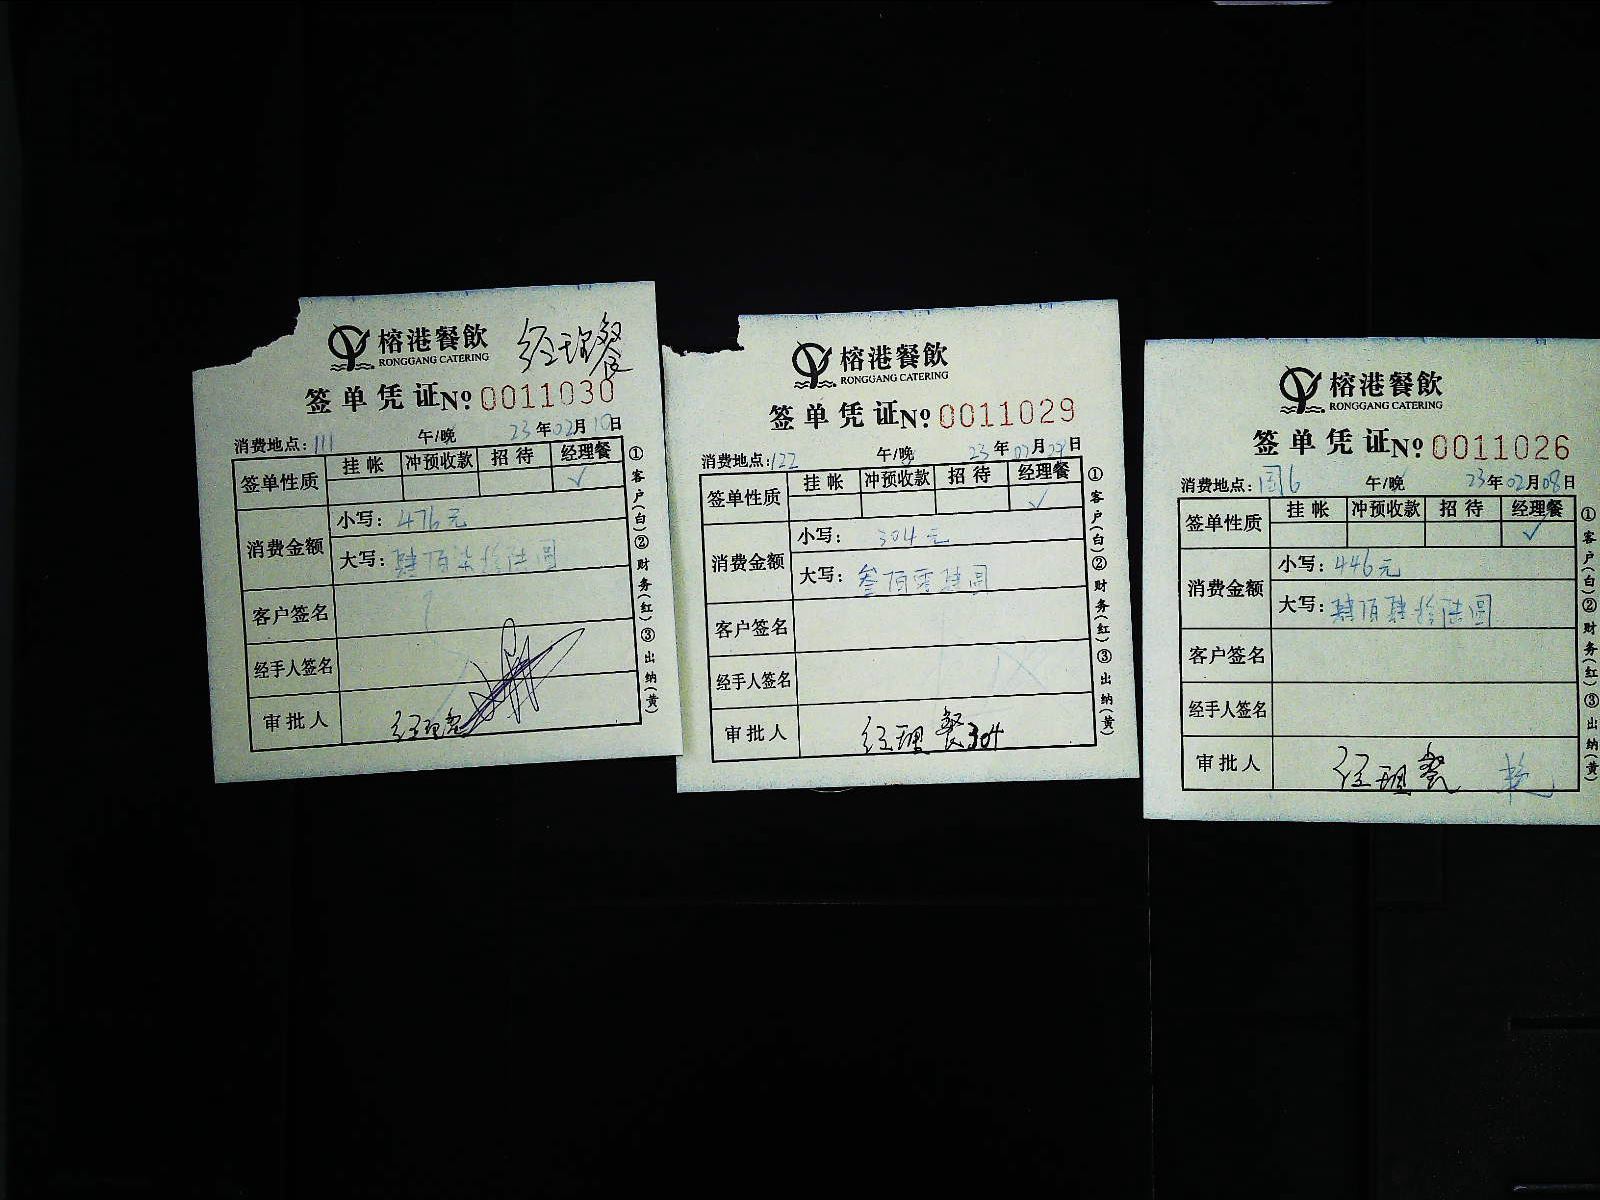 榕港餐飲
RONGGANG CATERING
经理餐
签单凭证 No 0011030
消费地点:111 午/晚 23年02月10日
签单性质 挂帐 冲预收款 招待 经理餐
✓
消费金额
小写:476元
大写:肆佰柒拾陆圆
客户签名
经手人签名
审批人 经理餐
①客户(白)②财务(红)③出纳(黄)
榕港餐飲
RONGGANG CATERING
签单凭证 No 0011029
消费地点:122 午/晚 23年02月09日
签单性质 挂帐 冲预收款 招待 经理餐
✓
消费金额
小写:304元
大写:叁佰零肆圆
客户签名
经手人签名
审批人 经理餐304
①客户(白)②财务(红)③出纳(黄)
榕港餐飲
RONGGANG CATERING
签单凭证 No 0011026
消费地点:国6 午/晚 23年02月08日
签单性质 挂帐 冲预收款 招待 经理餐
✓
消费金额
小写:446元
大写:肆佰肆拾陆圆
客户签名
经手人签名
审批人 经理餐
①客户(白)②财务(红)③出纳(黄)